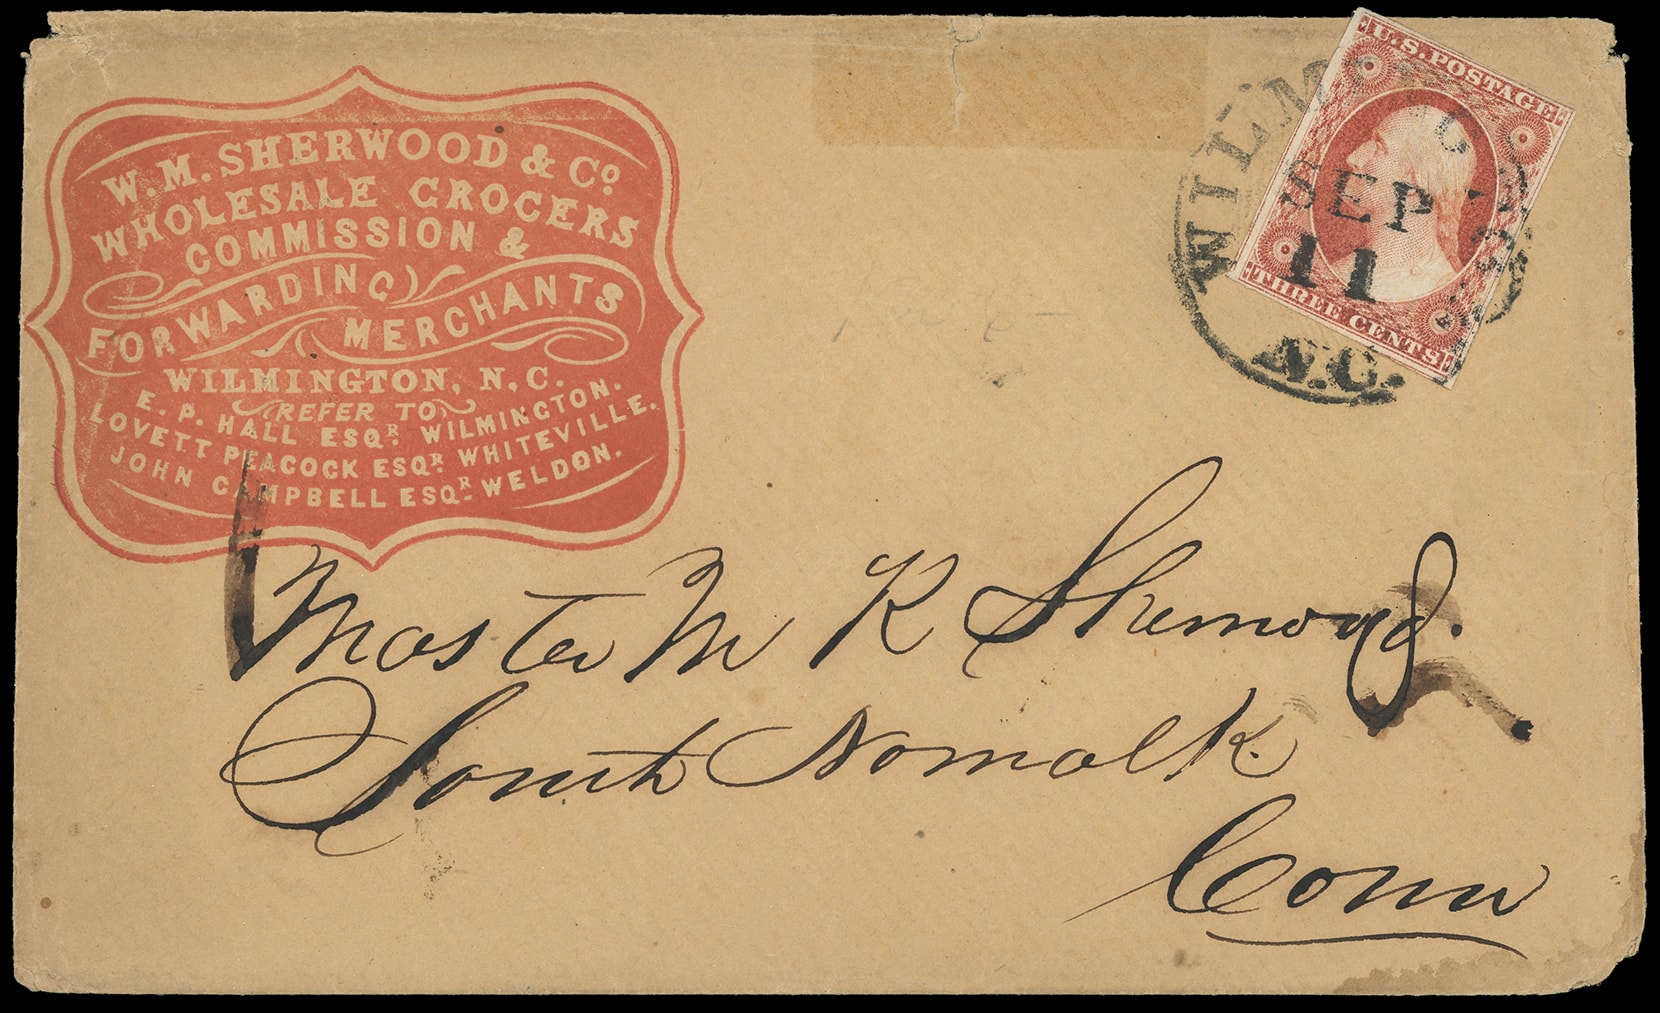 W. M. SHERWOOD & Co
WHOLESALE GROCERS
COMMISSION &
FORWARDING
MERCHANTS
WILMINGTON, N. C.
REFER TO
E. P. HALL ESQR. WILMINGTON.
LOVETT PEACOCK ESQR. WHITEVILLE.
JOHN CAMPBELL ESQR. WELDON.
U.S. POSTAGE
THREE CENTS
SEP
11
N.C.
Master M K Sherwood.
South Norwalk.
Conn